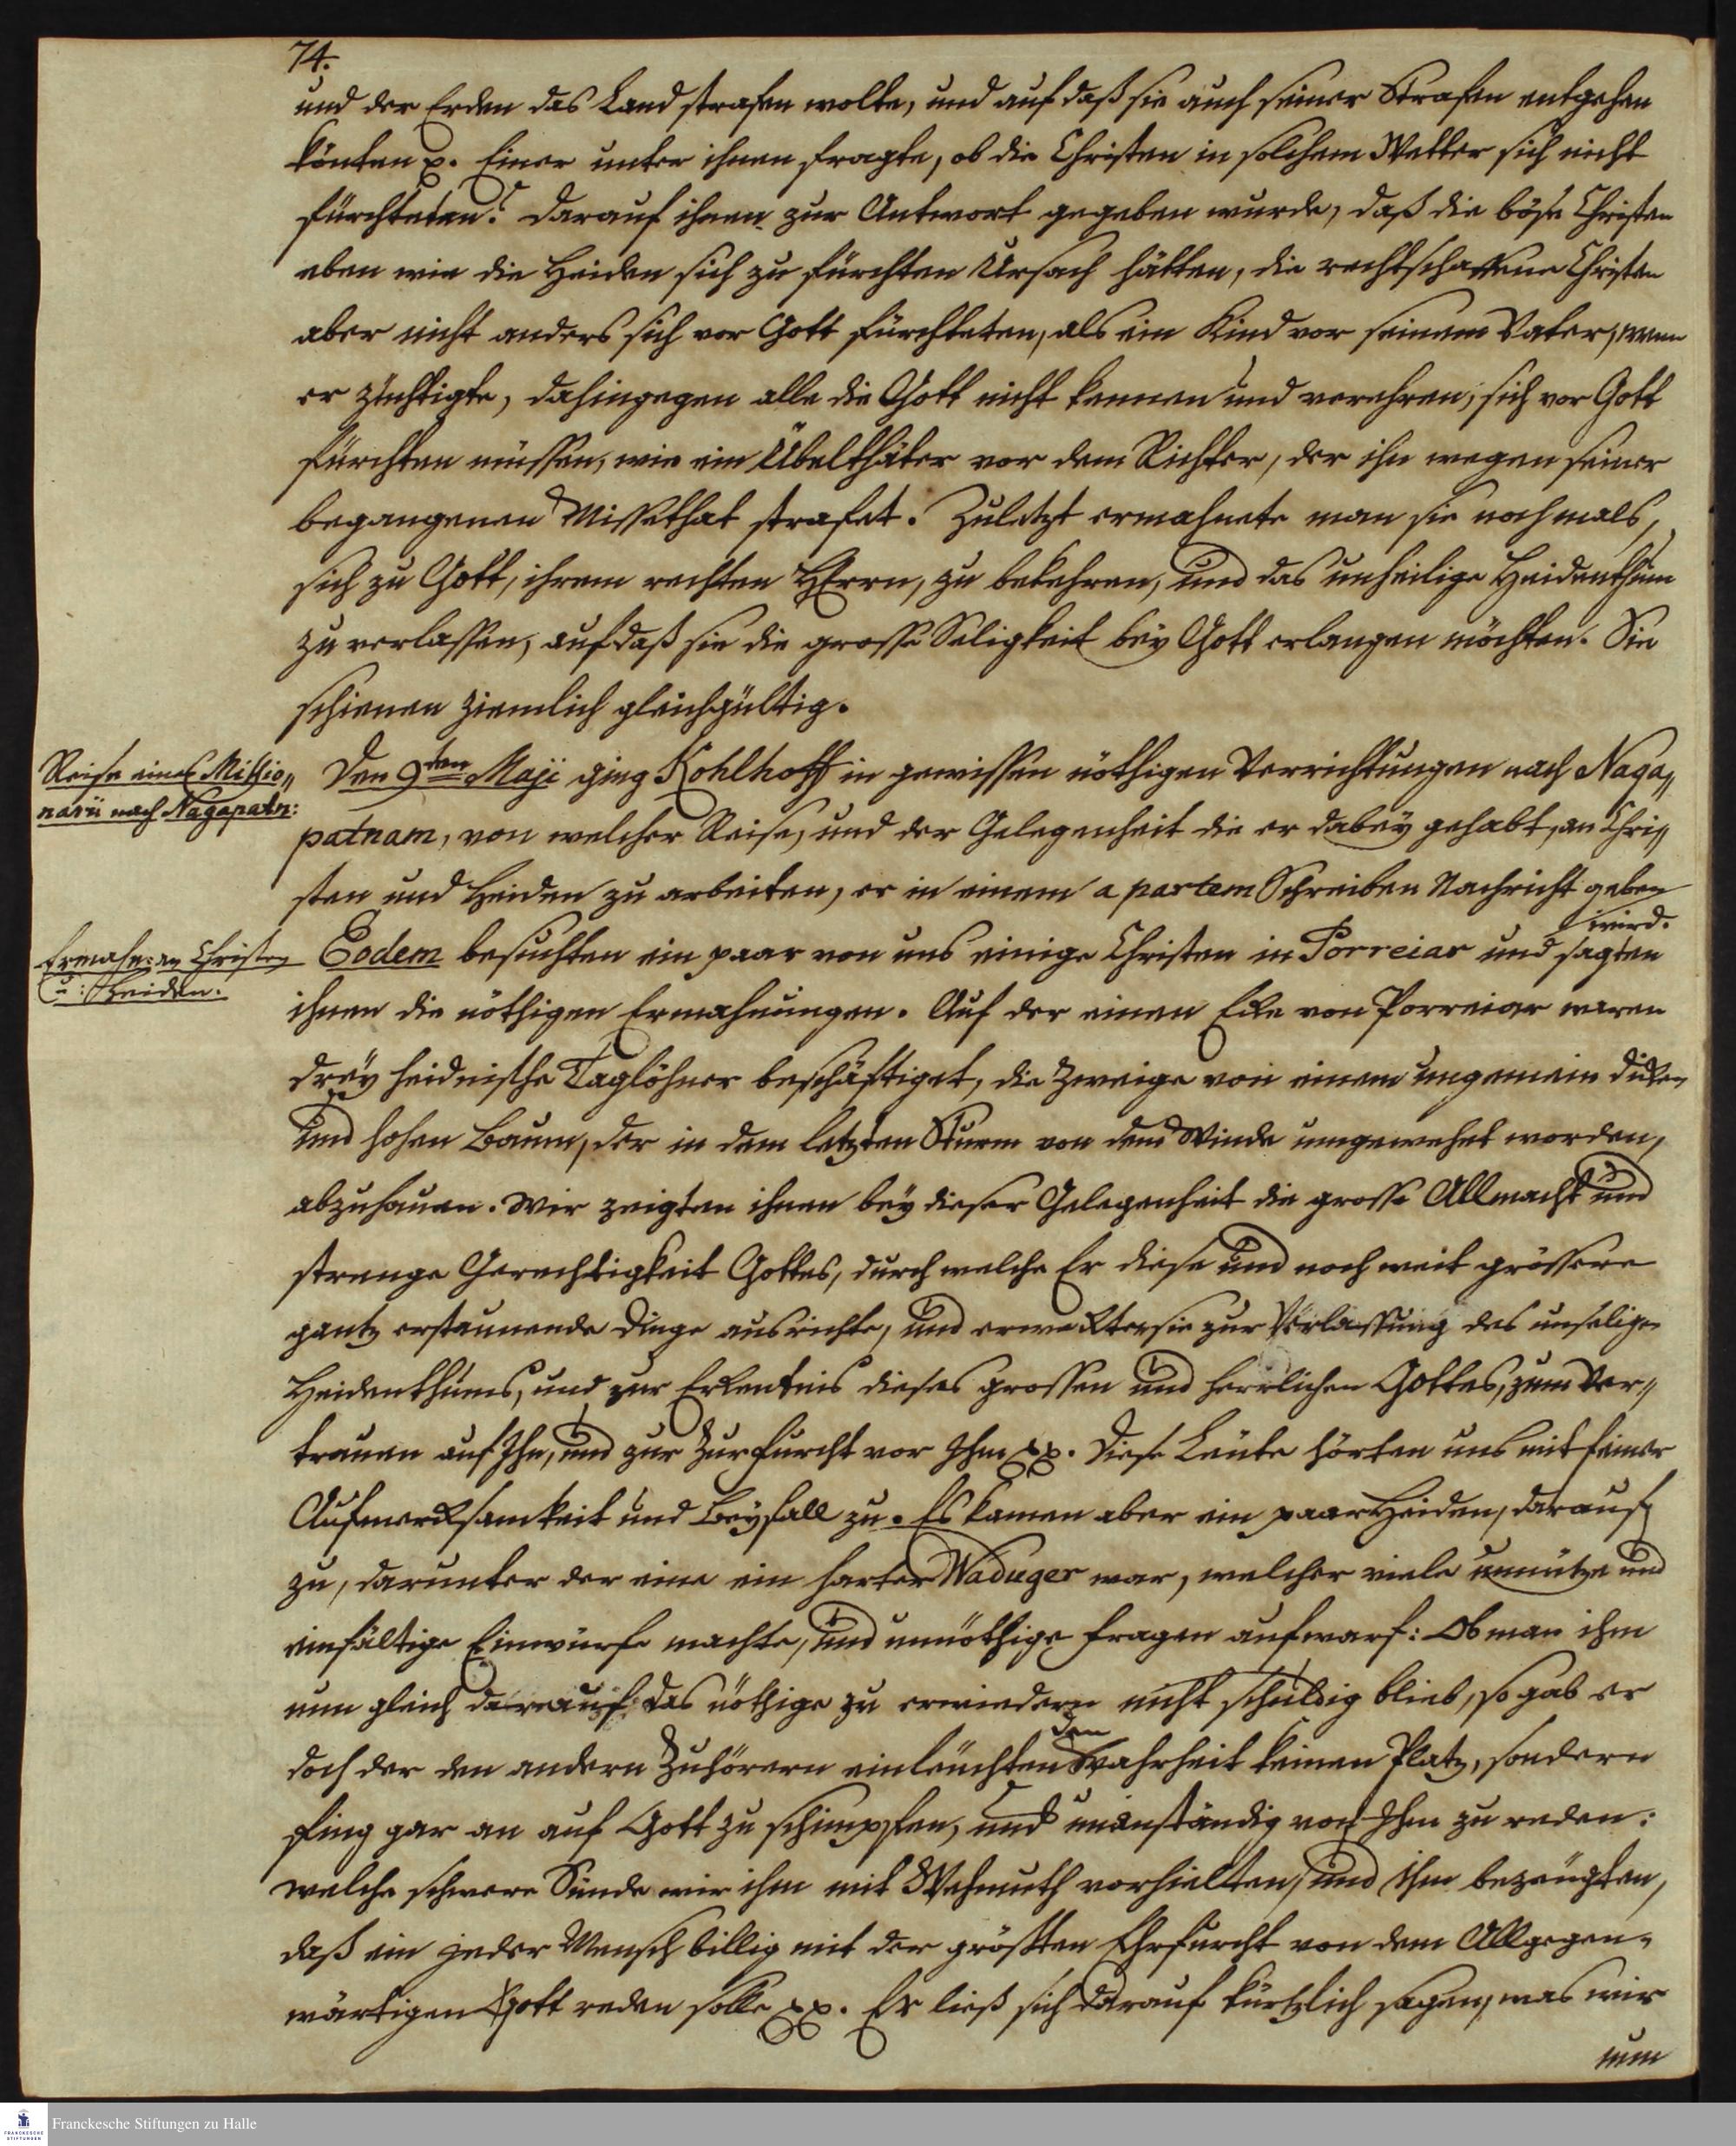 74.
und der Erden das Land strafen wolte, und auf daß sie auch seiner Strafen entgehen
könten p. Einer unter ihnen fragte, ob die Christen in solchem Wetter sich nicht
fürchteten? Darauf ihnen zur Antwort gegeben wurde, daß die böse Christen
eben wie die Heiden sich zu fürchten Ursach hätten, die rechtschaffene Christen
aber nicht anders sich vor Gott fürchteten, als ein Kind vor seinem Vater, wenn
er züchtigte, dahingegen alle die Gott nicht kennen und verehren, sich vor Gott
fürchten müssen, wie ein Übelthäter vor dem Richter, der ihn wegen seiner
begangenen Missethat strafet. Zuletzt ermahnete man sie nochmals,
sich zu Gott, ihrem rechten HErrn, zu bekehren, und das unheilige Heidenthum
zu verlassen, auf daß sie die grosse Seligkeit bey Gott erlangen möchten. Sie
schienen ziemlich gleichgültig.
Reise eines Missio„
narii nach Nagapatn:
Den 9ten Maji ging Kohlhoff in gewissen nöthigen Verrichtungen nach Naga„
patnam, von welcher Reise, und der Gelegenheit die er dabey gehabt, an Chri„
sten und Heiden zu arbeiten, er in einem a partem Schreiben Nachricht geben
wird.
Ermahn: an Christen
u: Heiden.
Eodem besuchten ein paar von uns einige Christen in Porreiar und sagten
ihnen die nöthigen Ermahnungen. Auf der einen Ecke von Porreiar waren
drey heidnische Taglöhner beschäftiget, die Zweige von einem ungemein dicken
und hohen Baum, der in dem letzten Sturm von dem Winde umgewehet worden,
abzuhauen. Wir zeigten ihnen bey dieser Gelegenheit die grosse Allmacht und
strenge Gerechtigkeit Gottes, durch welche Er diese und noch weit grössere
gantz erstaunende Dinge ausrichte, und erweckten sie zur Verlassung des unseligen
Heidenthums, und zur Erkentnis dieses grossen und herrlichen Gottes, zum Ver„
trauen auf Ihn, und zur Zur Furcht vor Ihm pp. Diese Leute hörten uns mit feiner
Aufmercksamkeit und Beyfall zu. Es kamen aber ein paar Heiden, darauf
zu, darunter der eine ein harter Waduger war, welcher viele unnütze und
einfältige Einwürfe machte, und unnöthige Fragen aufwarf: Ob man ihm
nun gleich darauf das nöthige zu erwiedern nicht schuldig blieb, so gab er
doch der den andern Zuhörern einleuchtenden Wahrheit keinen Platz, sondern
fing gar an auf Gott zu schimpfen, und unanständig von Ihm zu reden:
welche schwere Sünde wir ihm mit Wehmuth vorhielten, und ihm bezeugten,
daß ein jeder Mensch billig mit der größten Ehrfurcht von dem Allgegen-
wärtigen Gott reden solle pp. Er ließ sich darauf kürtzlich sagen, was wir
nun
Franckesche Stiftungen zu Halle